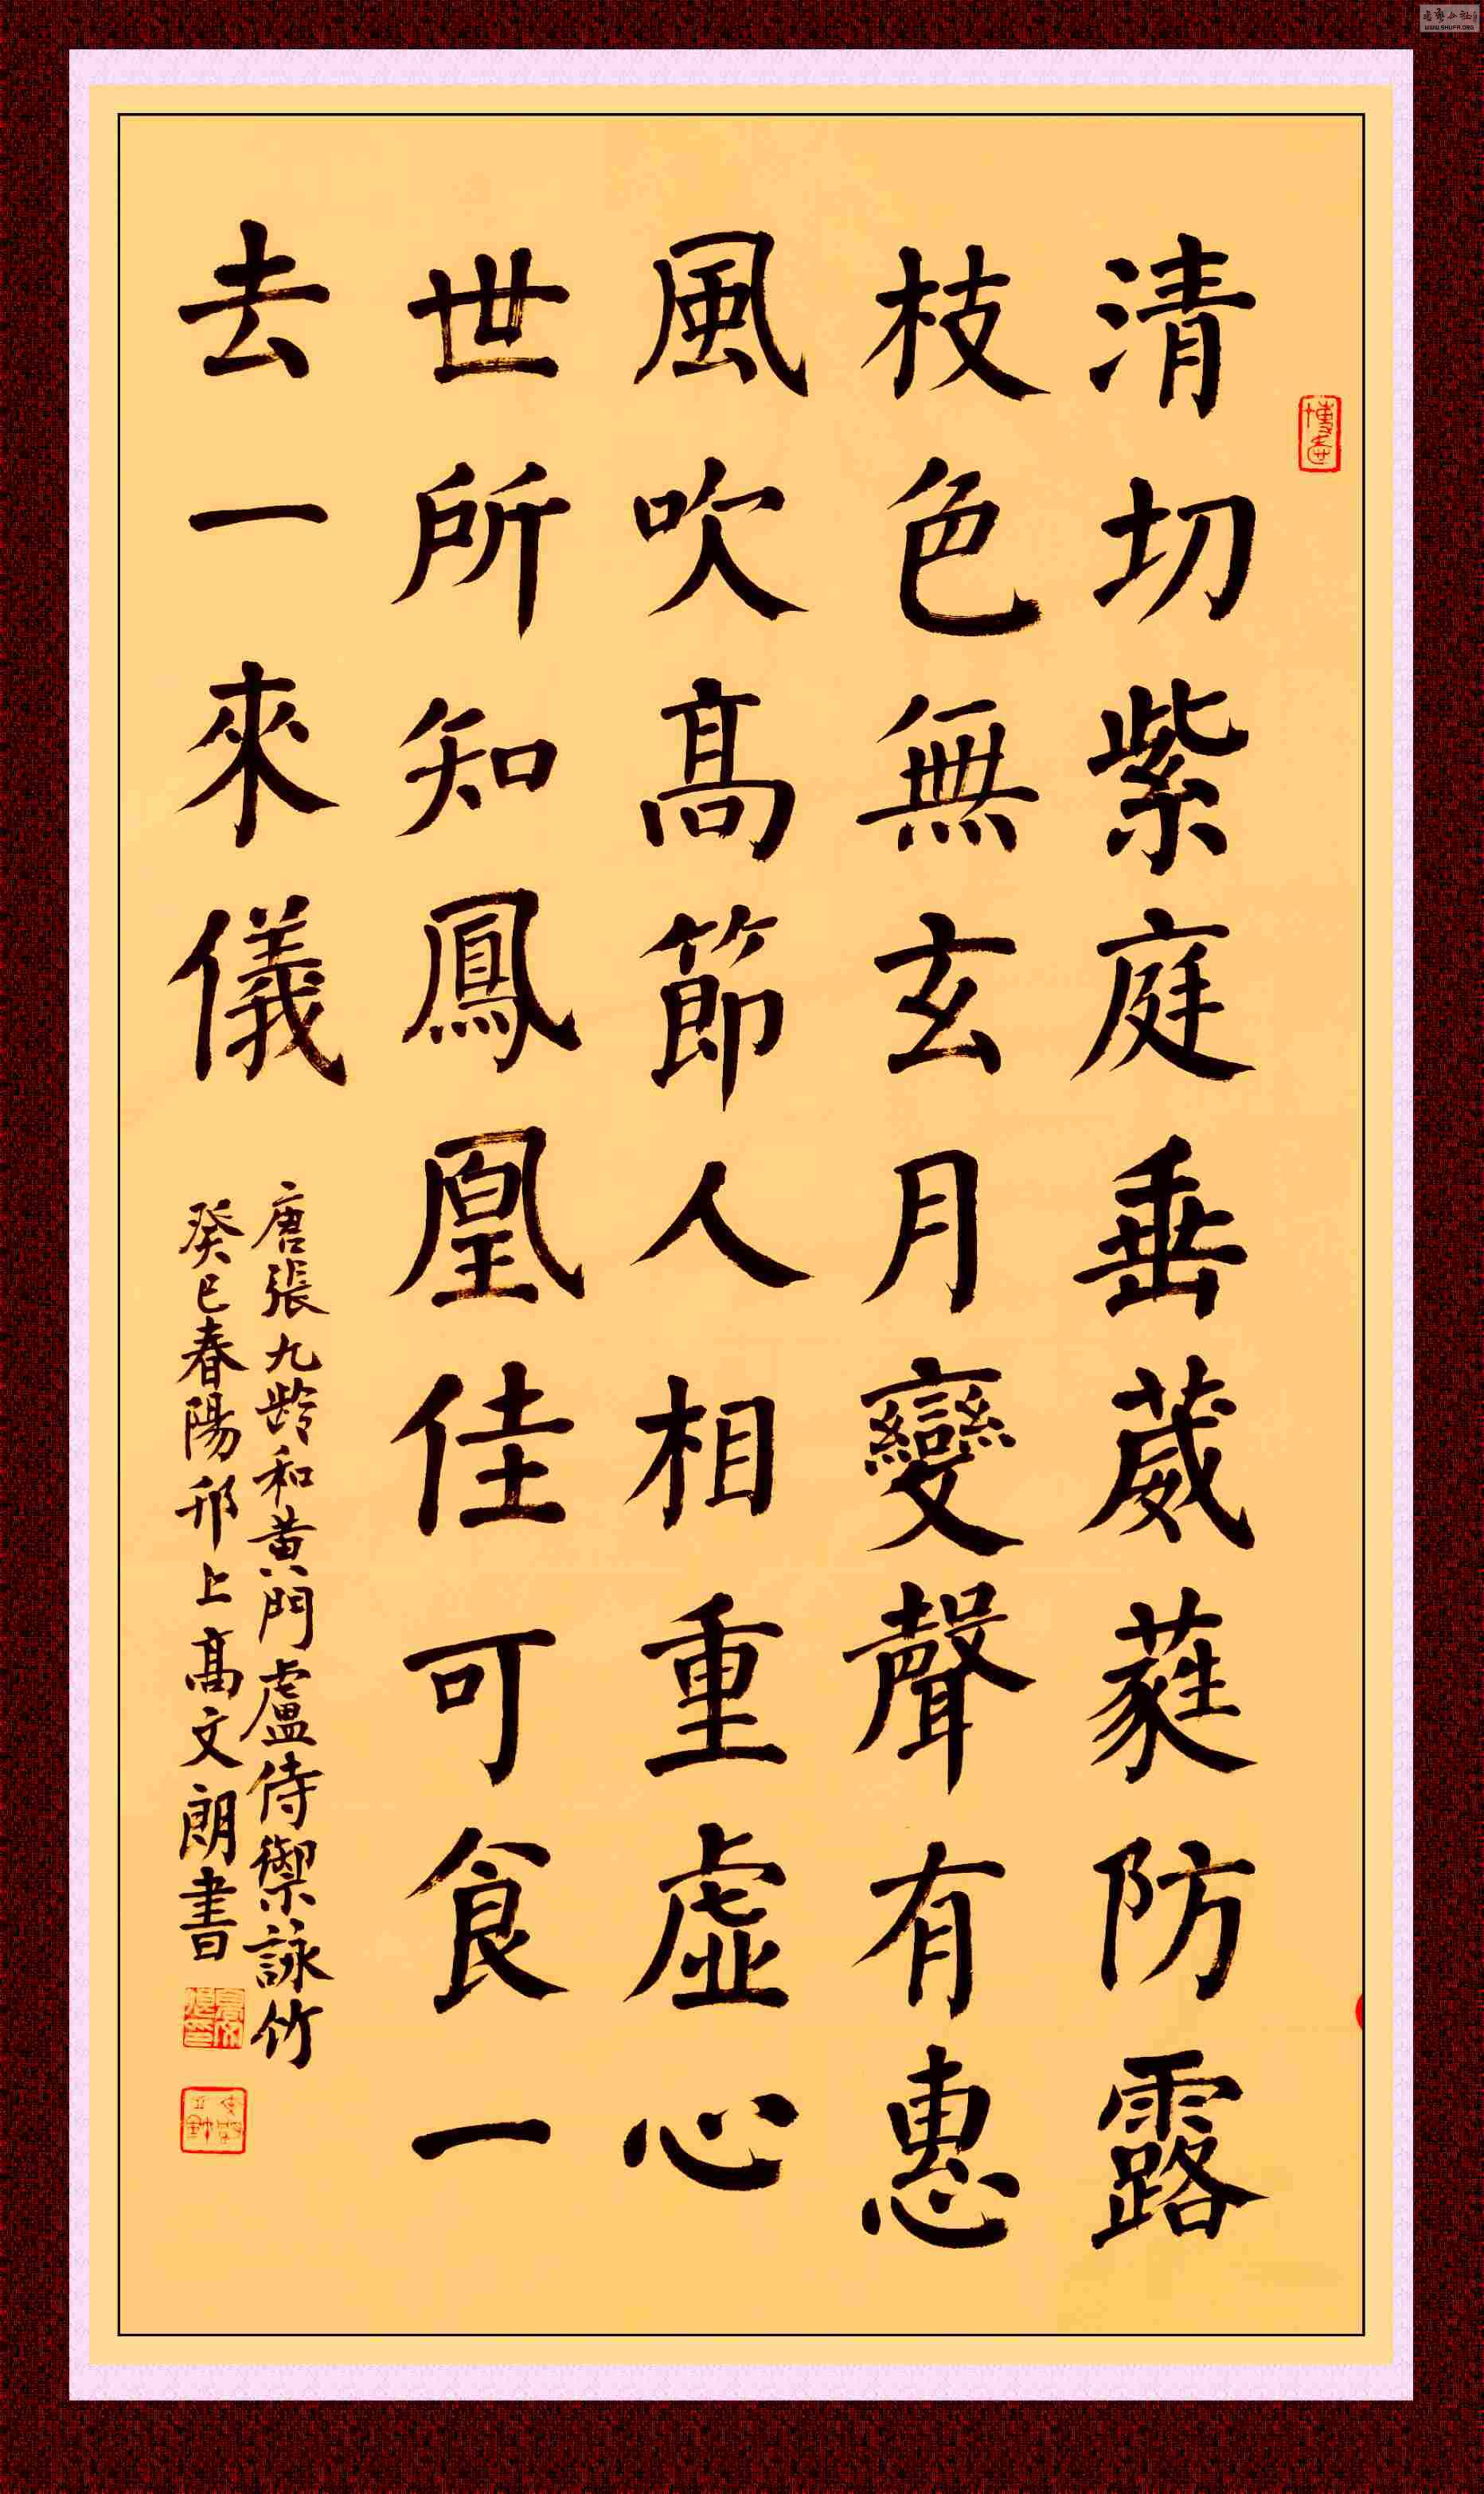 清切紫庭垂葳蕤防露
枝色無玄月變聲有惠
風吹高節人相重虛心
世所知鳳凰佳可食一
去一來儀
唐張九齡和黄門盧侍御詠竹
癸巳春陽邗上高文朗書
WWW.SHUFA.ORG